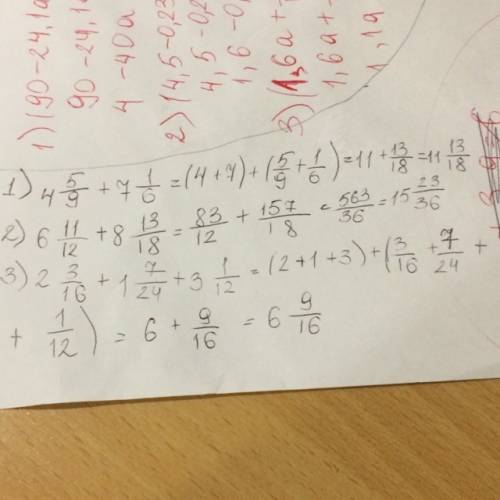 1) 4 5/9 + 7 1/6 = (4+7) + (5/9 + 1/6) = 11 + 13/18 = 11 13/18
2) 6 11/12 + 8 13/18 = 83/12 + 157/18 = 563/36 = 15 23/36
3) 2 3/16 + 1 7/24 + 3 1/12 = (2+1+3) + (3/16 + 7/24 +
+ 1/12) = 6 + 9/16 = 6 9/16
1) (90-24,1a
90-24,1
4-40a
2) (4,5-0,23
4,5-0,2
1,6-0
3) (1,6a+
1,6a+
1,1a